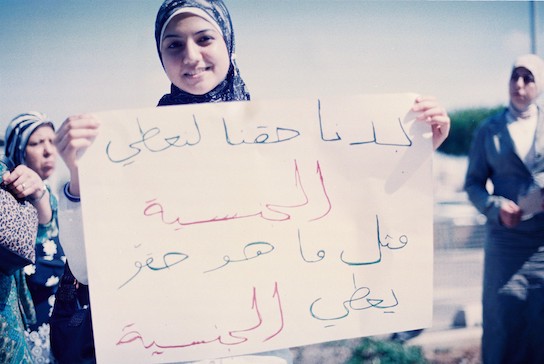 بدنا حقنا نعطي
الجنسية
مثل ما هو حقو
يعطي الجنسية